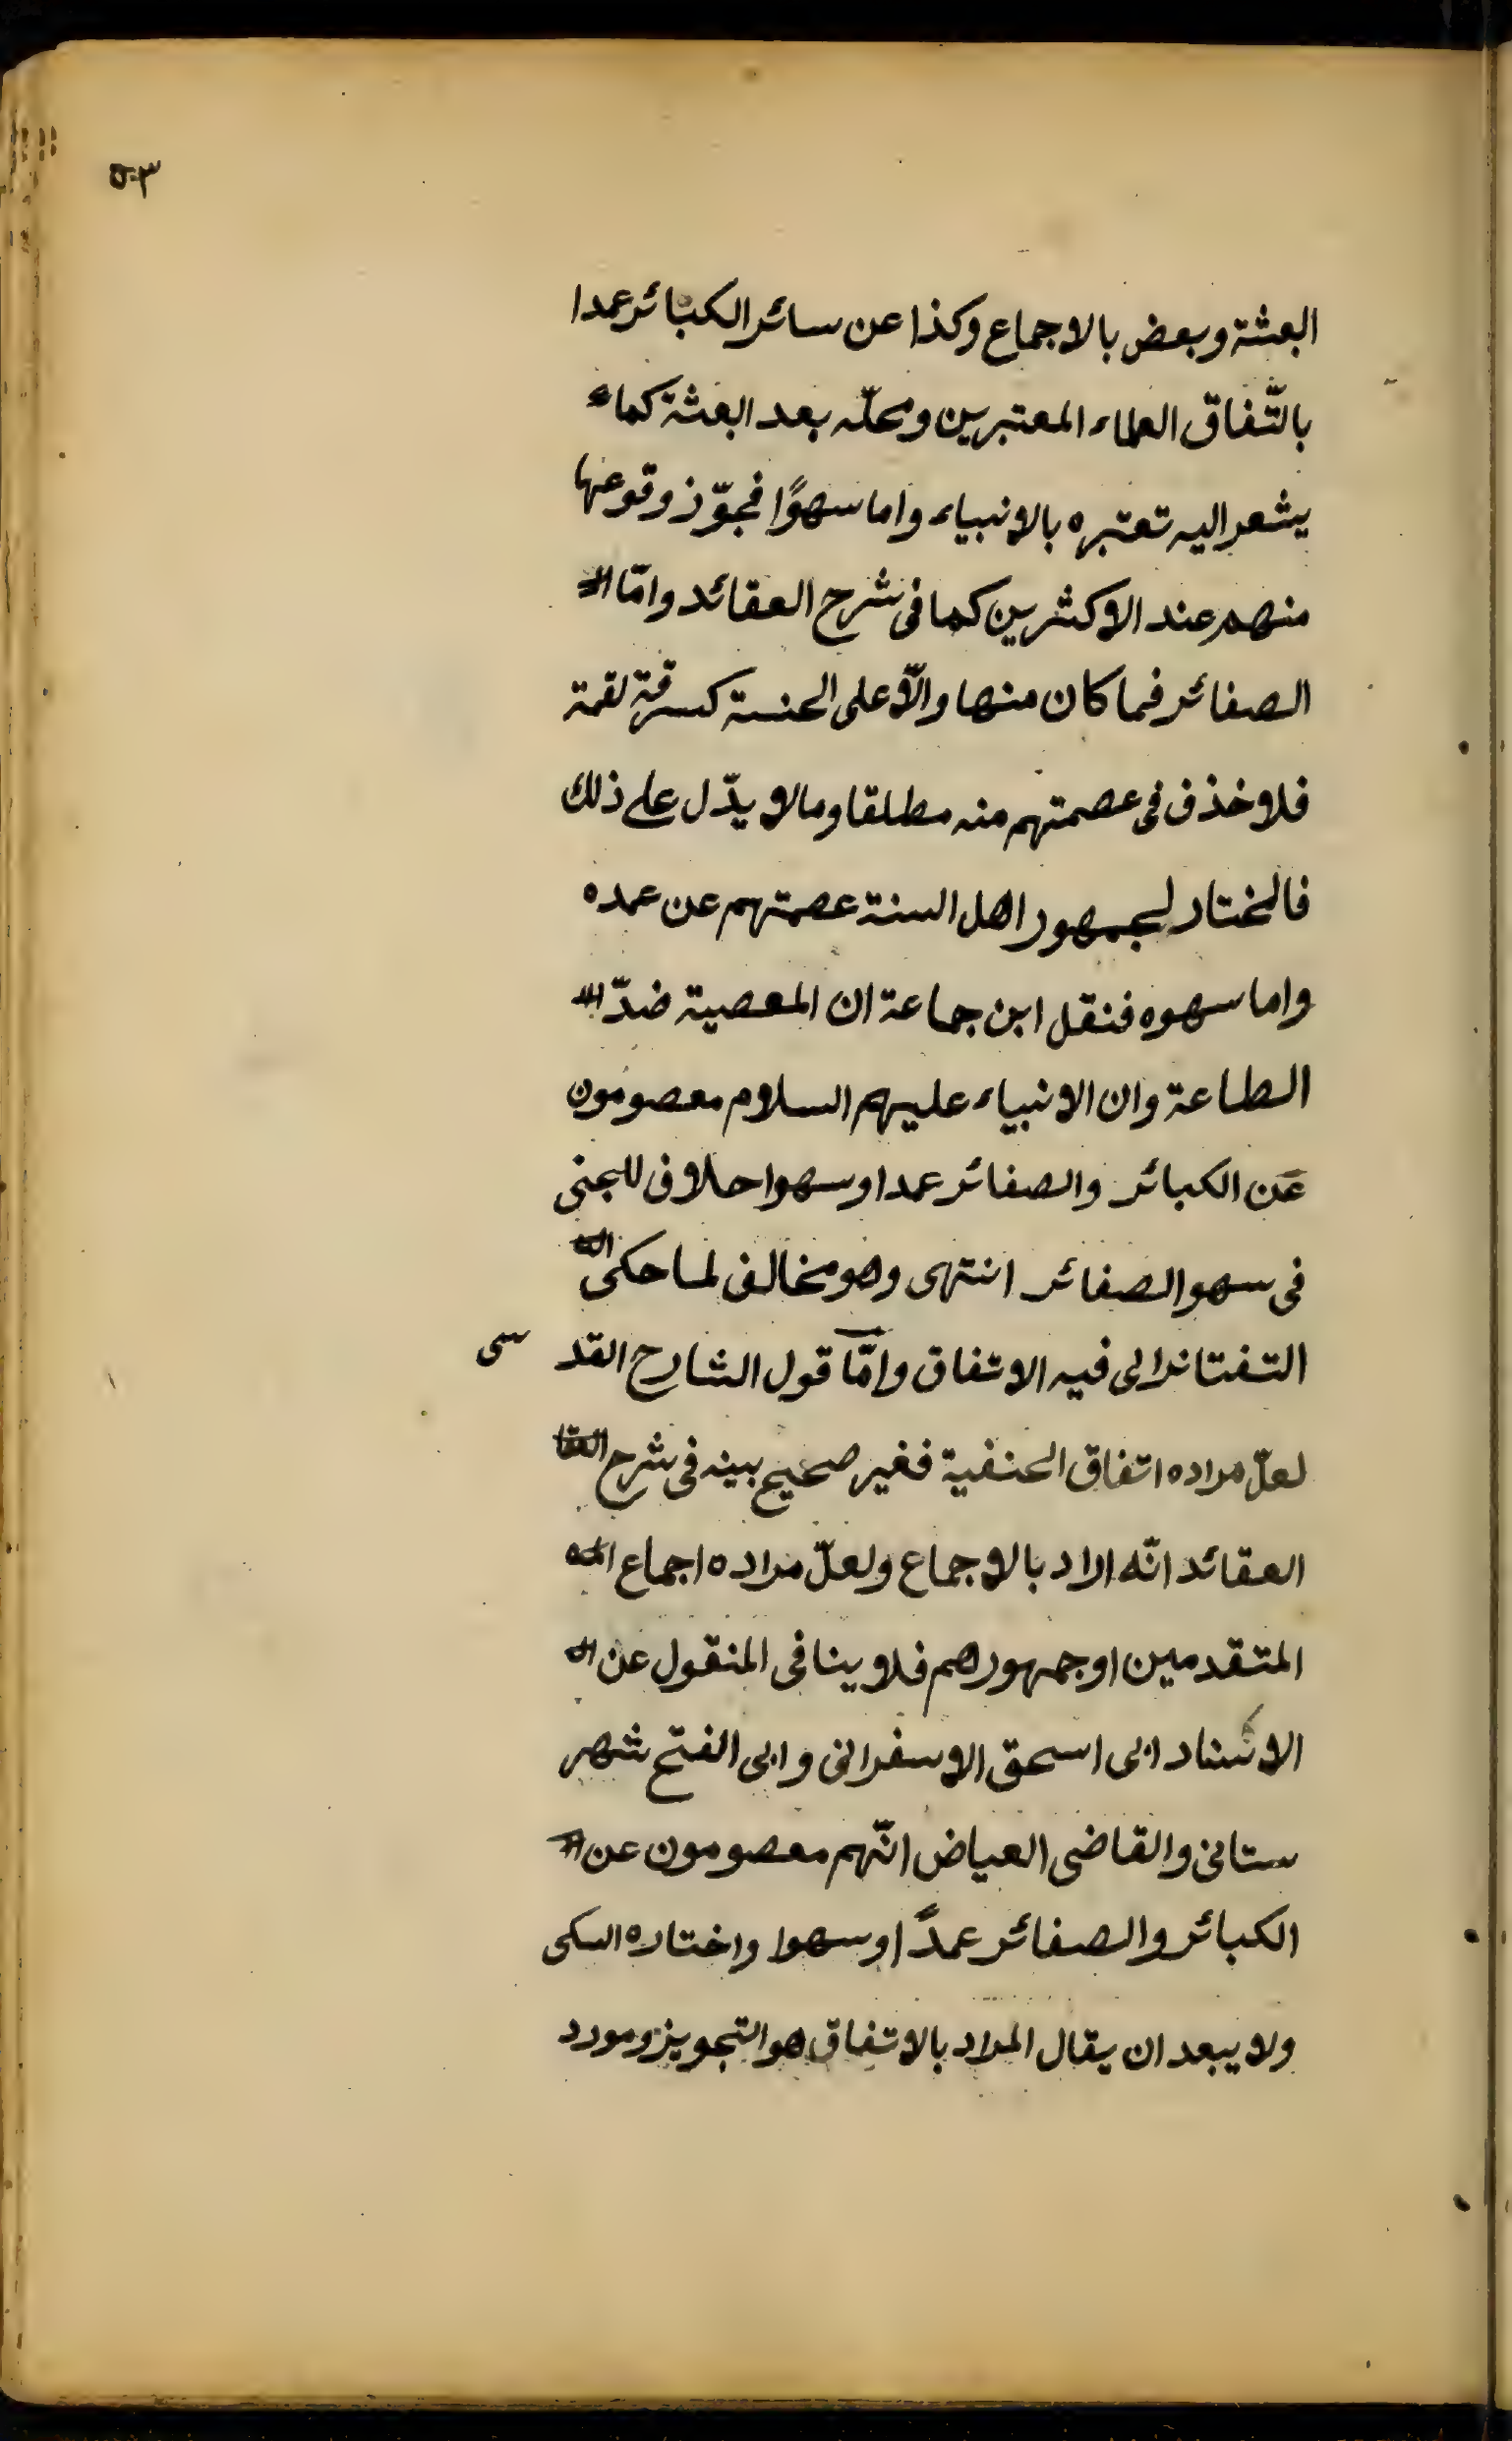 ٥٠٣
البعثة وبعض بالاجماع وكذا عن سائر الكبائر عمدا
بالتّفاق العلماء المعتبرين ومحلّه بعد البعثة كما
يشعر اليه تعتبره بالانبياء واما سهوًا فجوّز وقوعها
منهم عند الاكثرين كما فى شرح العقائد وامّا
الصغائر فما كان منها والّا على الحنسة كسرقة لقمة
فلا خذف فى عصمتهم منه مطلقا ومالا يدّل على ذلك
فالمختار لجمهور اهل السنة عصمتهم عن عمده
واما سهوه فنقل ابن جماعة ان المعصية ضدّ
الطاعة وان الانبياء عليهم السلام معصومون
عَن الكبائر والصغائر عمدا وسهوا حلاف للجنى
فى سهو الصغائر انتهى وهو مخالف لما حكى
التفتانرا لى فيه الاتفاق وامّا قول الشارح القد سى
لعلّ مراده اتفاق الحنفية فغير صحيح بينه فى شرح
العقائد انّه اراد بالاجماع ولعلّ مراده اجماع
المتقدمين او جمهورهم فلا ينافى المنقول عن
الاستاد ابى اسحق الاسفرانى وابى الفتح شهر
ستانى والقاضى العياض انّهم معصومون عن
الكبائر والصغائر عمدًا وسهوا واختاره السكى
ولا يبعد ان يقال المراد بالاتفاق هو التجويز ومورد